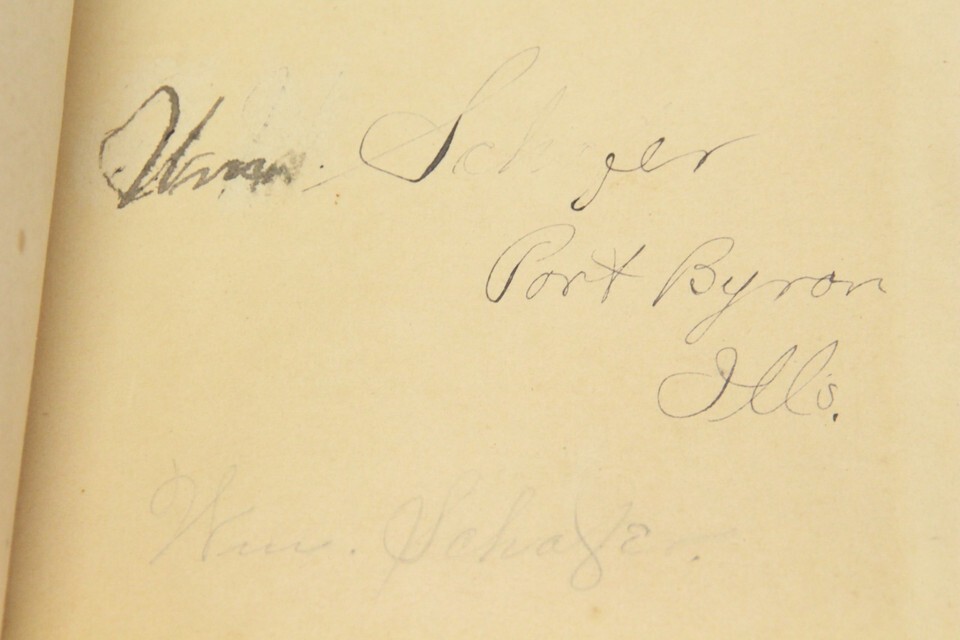 Wm. Schafer
Port Byron
Ills.
Wm. Schafer.